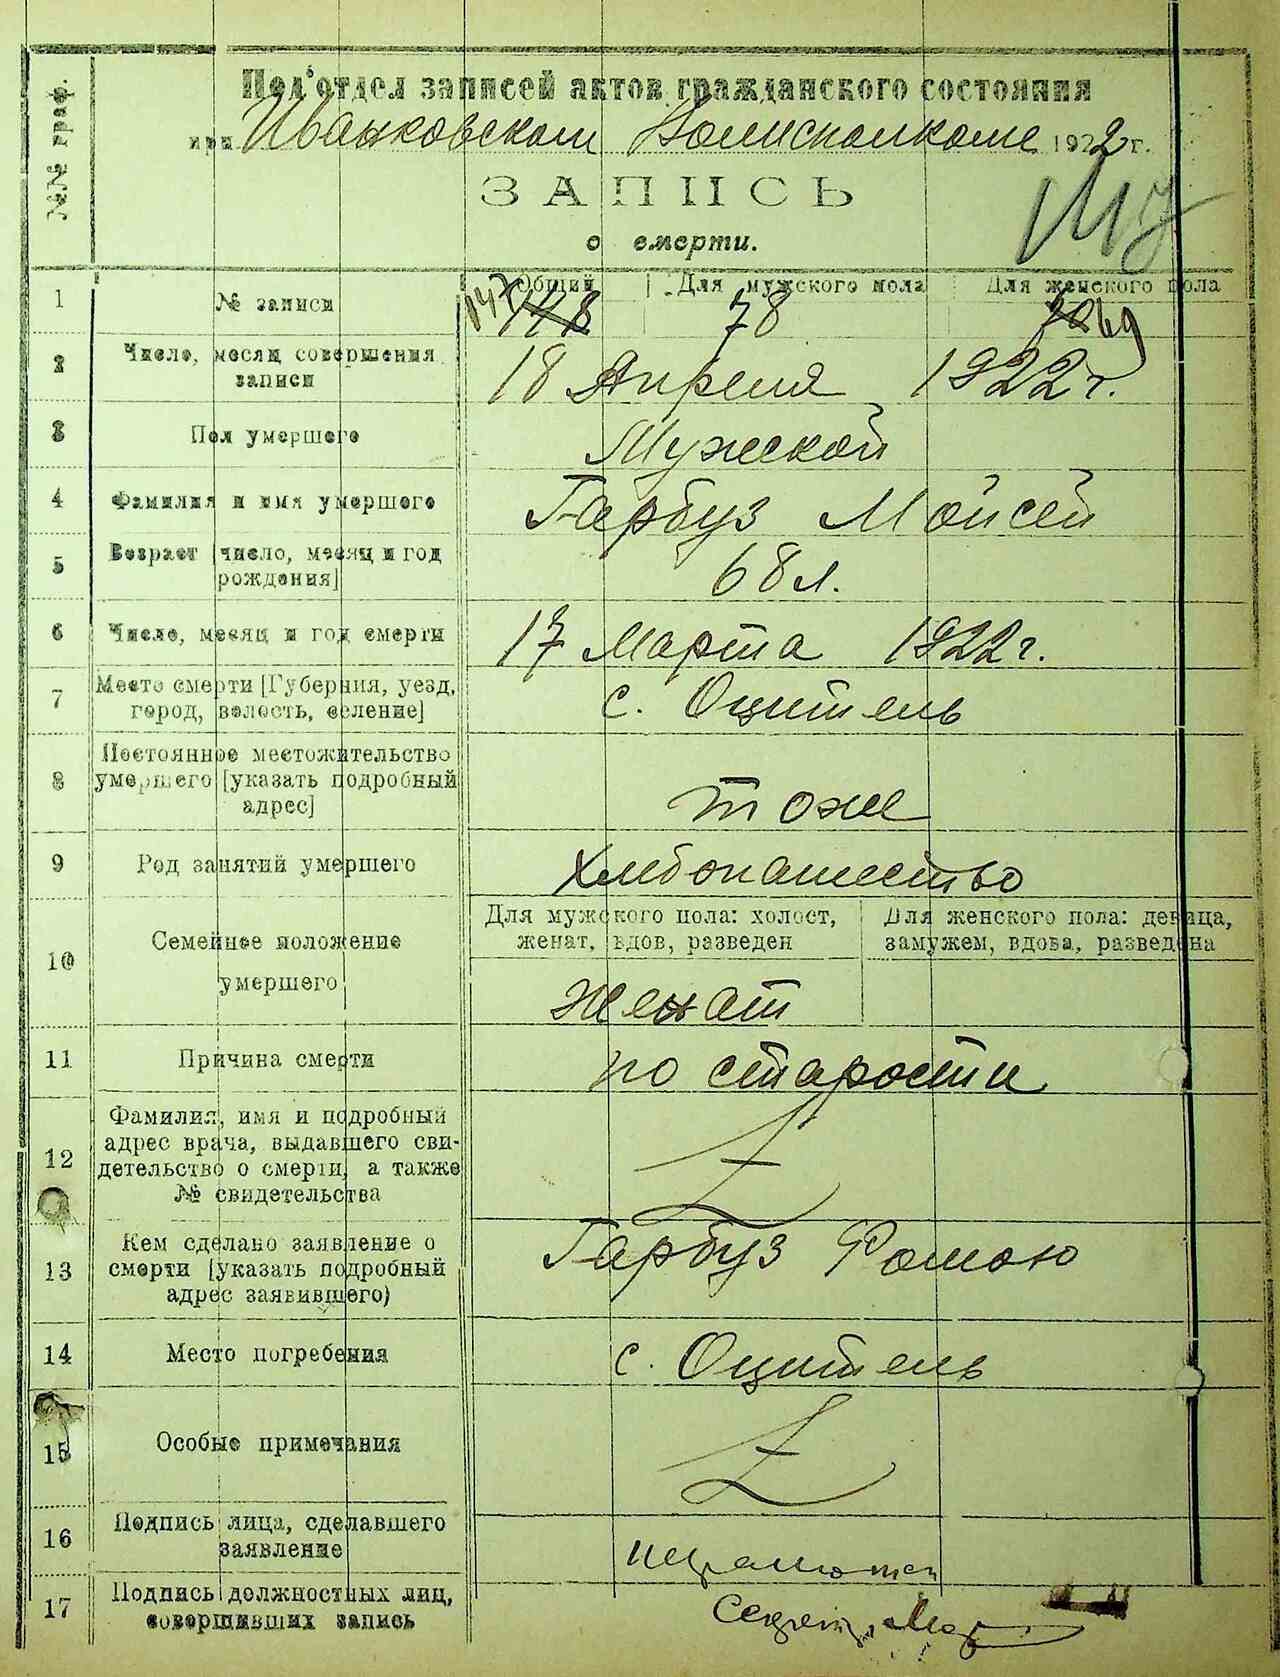 №№ граф.
Под'отдел записей актов гражданского состояния
при Иванковском Волисполкоме 1922 г.
ЗАПИСЬ
о смерти.
1
№ записи
Общий
Для мужского пола
Для женского пола
147 148
78
70 69
2
Число, месяц совершения
записи
18 Апреля 1922 г.
3
Пол умершего
Мужской
4
Фамилия и имя умершего
Гарбуз Мойсей
5
Возраст [число, месяц и год
рождения]
68 л.
6
Число, месяц и год смерти
17 Марта 1922 г.
7
Место смерти [Губерния, уезд,
город, волость, селение]
с. Оцитель
8
Постоянное местожительство
умершего [указать подробный
адрес]
тоже
9
Род занятий умершего
Хлебопашество
10
Семейное положение
умершего
Для мужского пола: холост,
женат, вдов, разведен
Для женского пола: девица,
замужем, вдова, разведена
женат
11
Причина смерти
по старости
12
Фамилия, имя и подробный
адрес врача, выдавшего сви-
детельство о смерти, а также
№ свидетельства
13
Кем сделано заявление о
смерти [указать подробный
адрес заявившего)
Гарбуз Фомою
14
Место погребения
с. Оцитель
15
Особые примечания
16
Подпись лица, сделавшего
заявление
неграмотен
17
Подпись должностных лиц,
совершивших запись